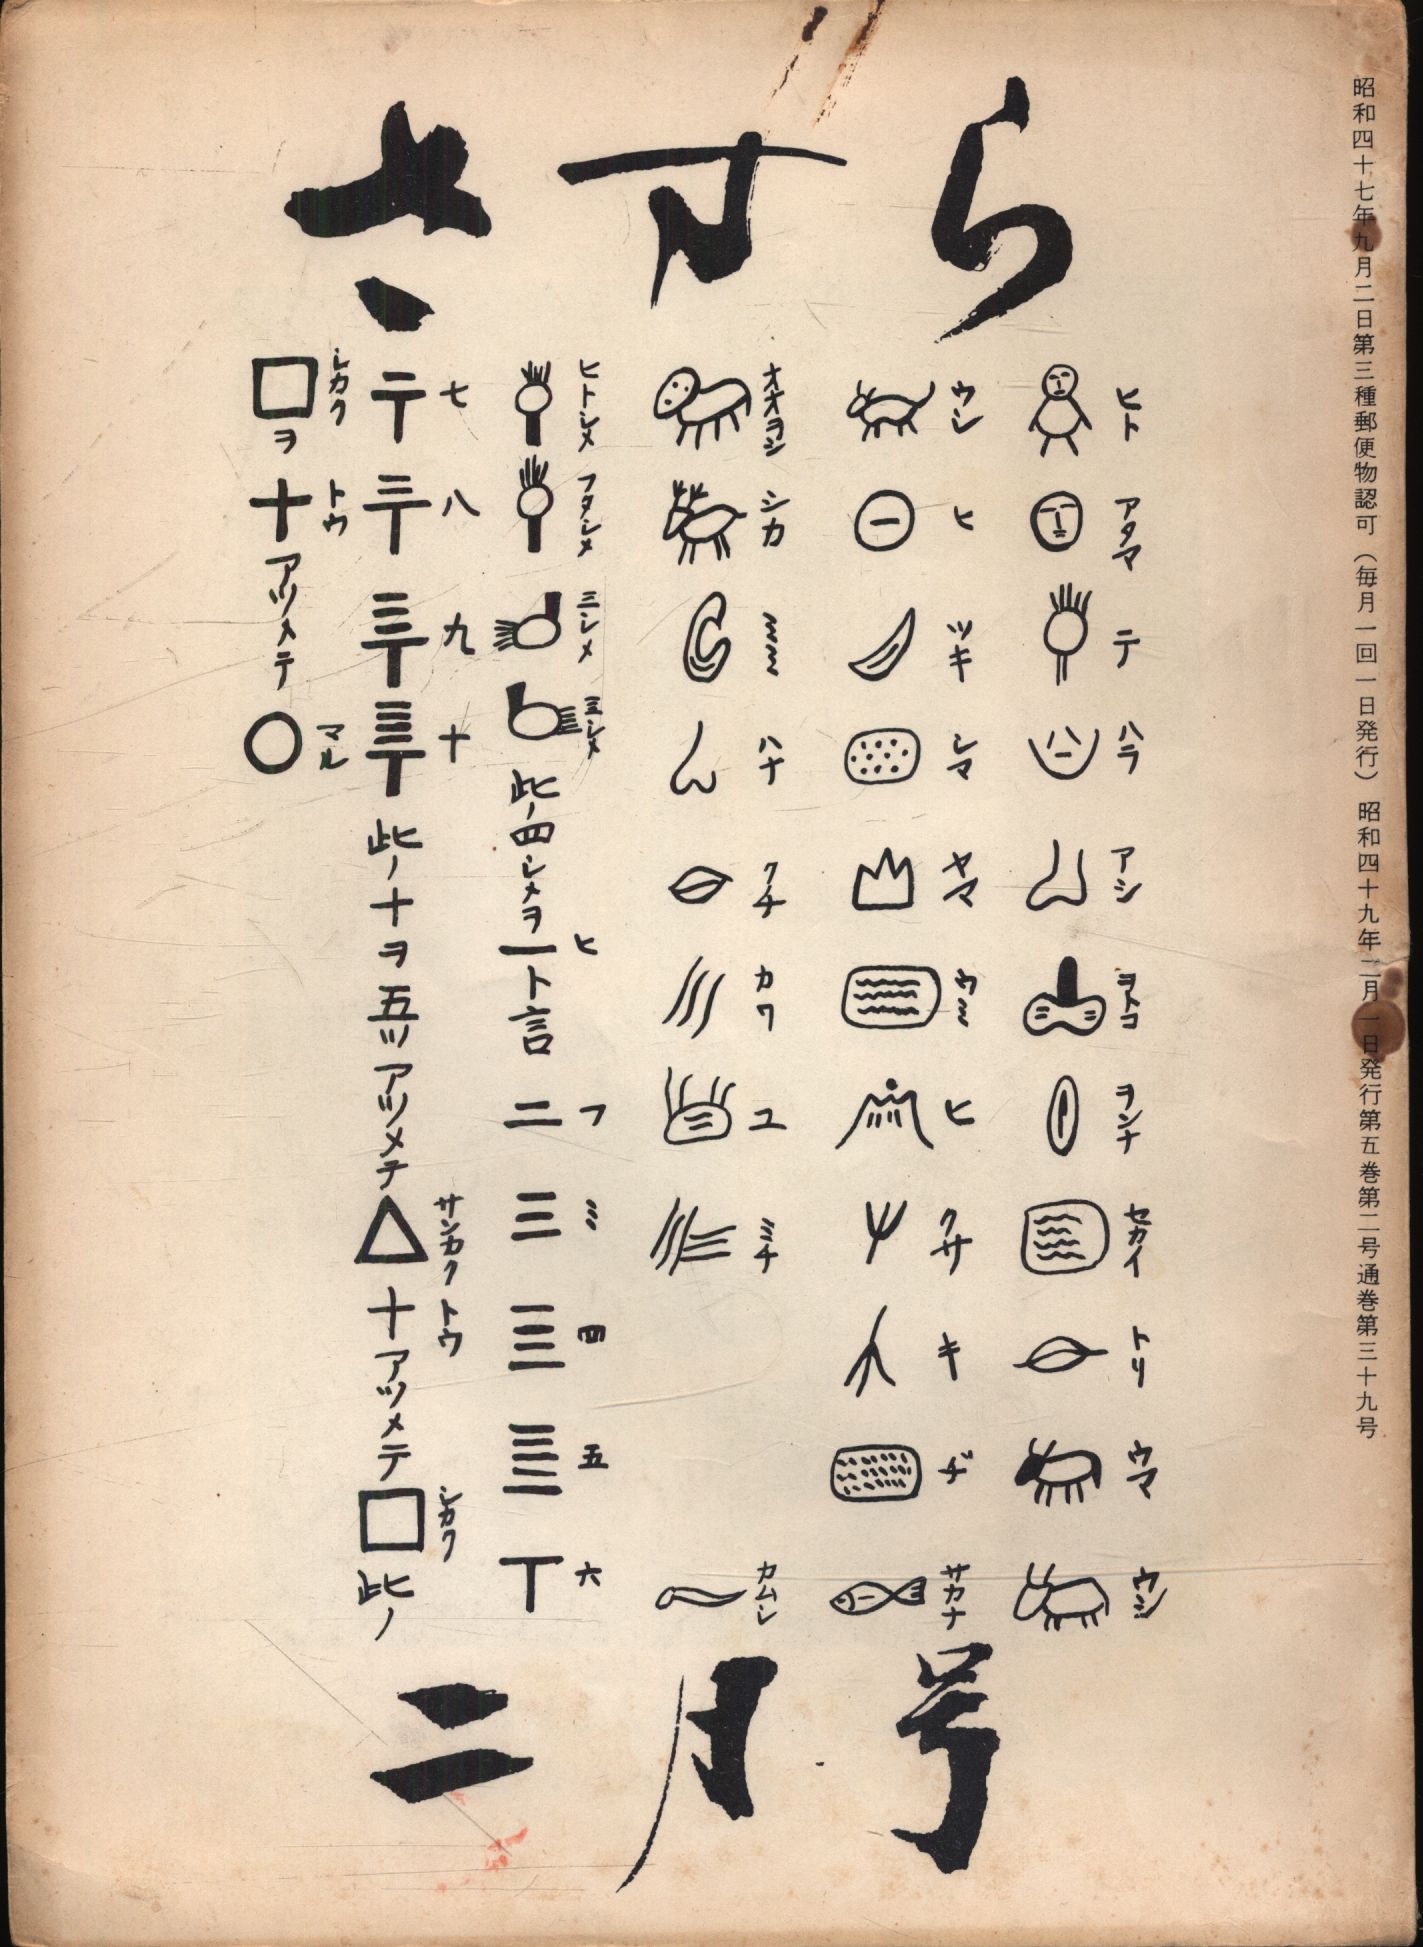 さすら
昭和四十七年九月二日第三種郵便物認可（毎月一回一日発行）昭和四十九年二月一日発行第五巻第二号通巻第三十九号
ヒト アタマ テ ハラ アシ ヲトコ ヲンナ セカイ トリ ウマ ウシ
ウシ ヒ ツキ シマ ヤマ ウミ ヒ クサ キ ヂ サカナ
オオヨシ シカ ミミ ハナ クチ カワ ユ ミチ カムシ
ヒトシメ フタシメ 三シメ 三シメ ヒ フ ミ 四 五 六
此ノ四シメヲ一ト言 二 三
七 八 九 十 サンカク トウ シカク
此ノ十ヲ五ツアツメテ△十アツメテ□此ノ
シカク トウ マル
□ヲ十アツメテ○
二月号